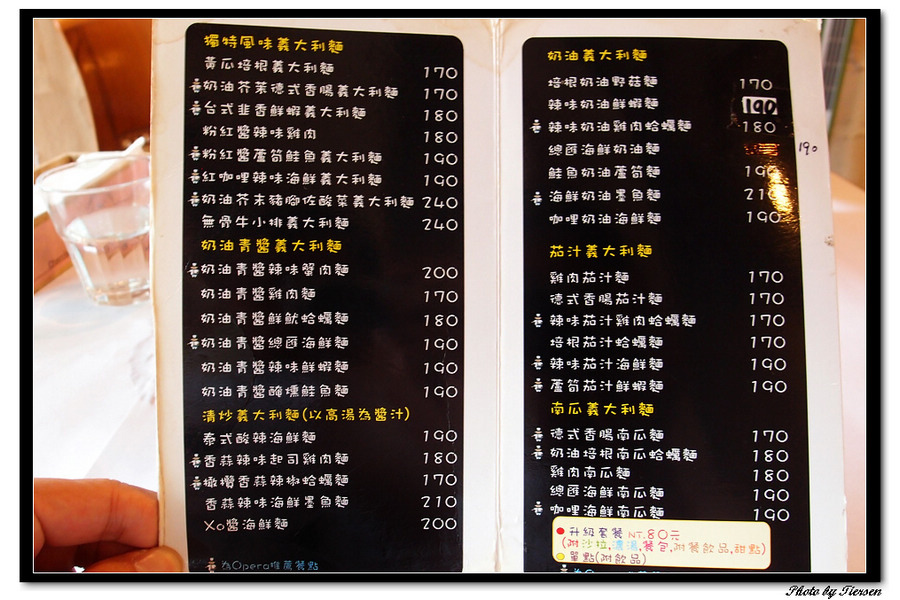 獨特風味義大利麵
黃瓜培根義大利麵 170
奶油芥茉德式香腸義大利麵 170
台式韭香鮮蝦義大利麵 180
粉紅醬辣味雞肉 180
粉紅醬蘆筍鮭魚義大利麵 190
紅咖哩辣味海鮮義大利麵 190
奶油芥末豬腳佐酸菜義大利麵 240
無骨牛小排義大利麵 240
奶油青醬義大利麵
奶油青醬辣味蟹肉麵 200
奶油青醬雞肉麵 170
奶油青醬鮮魷蛤蠣麵 180
奶油青醬總匯海鮮麵 190
奶油青醬辣味鮮蝦麵 190
奶油青醬醃燻鮭魚麵 190
清炒義大利麵(以高湯為醬汁)
泰式酸辣海鮮麵 190
香蒜辣味起司雞肉麵 180
橄欖香蒜辣椒蛤蠣麵 170
香蒜辣味海鮮墨魚麵 210
Xo醬海鮮麵 200
為Opera推薦餐點
奶油義大利麵
培根奶油野菇麵 170
辣味奶油鮮蝦麵 190
辣味奶油雞肉蛤蠣麵 180
總匯海鮮奶油麵 190
鮭魚奶油蘆筍麵 190
海鮮奶油墨魚麵 210
咖哩奶油海鮮麵 190
茄汁義大利麵
雞肉茄汁麵 170
德式香腸茄汁麵 170
辣味茄汁雞肉蛤蠣麵 170
培根茄汁蛤蠣麵 170
辣味茄汁海鮮麵 190
蘆筍茄汁鮮蝦麵 190
南瓜義大利麵
德式香腸南瓜麵 170
奶油培根南瓜蛤蠣麵 180
雞肉南瓜麵 180
總匯海鮮南瓜麵 190
咖哩海鮮南瓜麵 190
升級套餐 NT.80元
(附沙拉,濃湯,餐包,附餐飲品,甜點)
單點(附飲品)
Photo by Tiersen